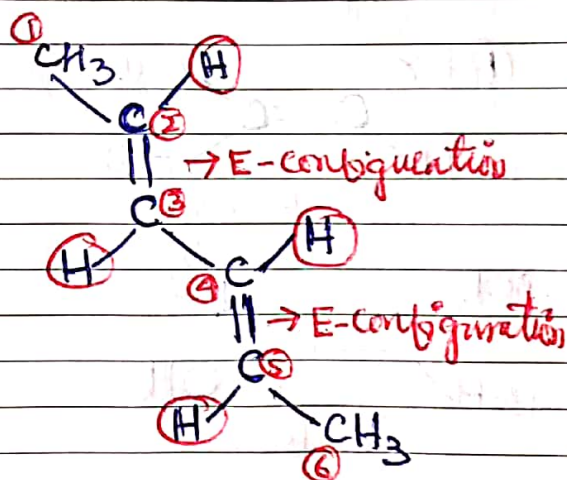 ①
CH3 H
C ②
→ E-configuration
C ③
H H
④ C
→ E-configuration
C ⑤
H CH3
⑥